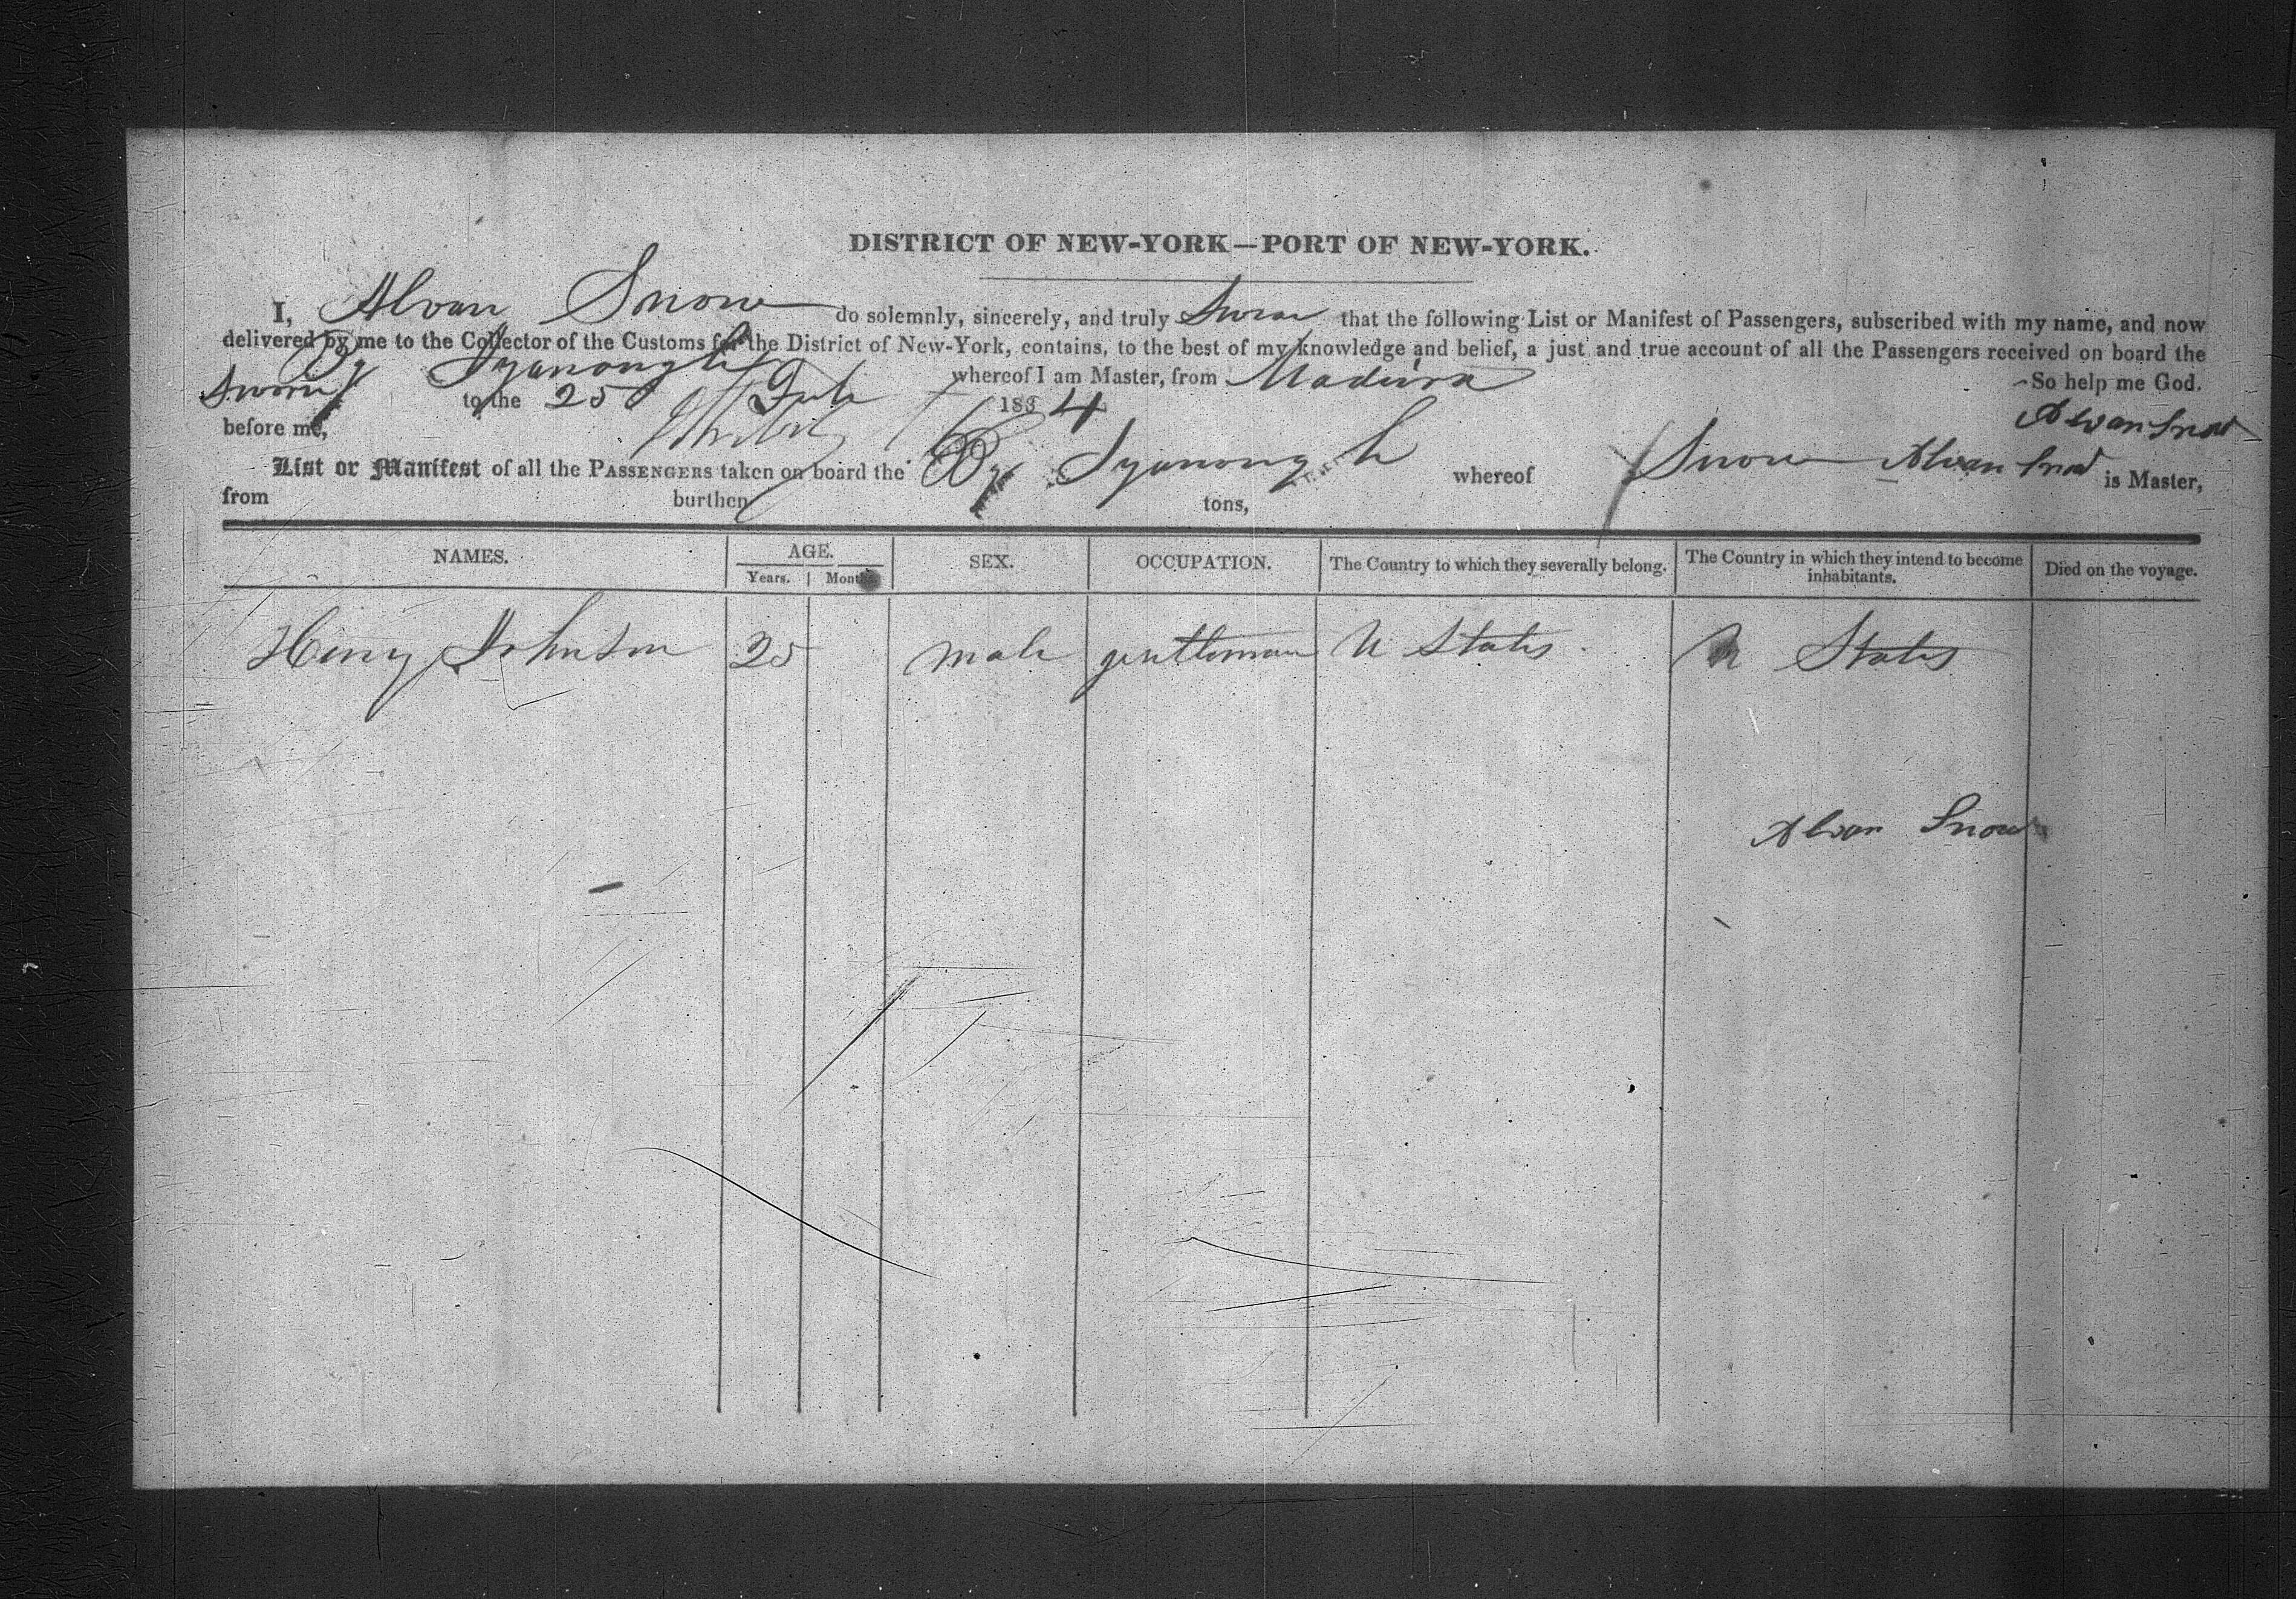 DISTRICT OF NEW-YORK—PORT OF NEW-YORK.
I, Alvan Snow do solemnly, sincerely, and truly Swear that the following List or Manifest of Passengers, subscribed with my name, and now
delivered by me to the Collector of the Customs for the District of New-York, contains, to the best of my knowledge and belief, a just and true account of all the Passengers received on board the
Bg Iyanough whereof I am Master, from Madeira So help me God.
Sworn to the 25 Feb 1834
before me, Alvan Snow
List or Manifest of all the PASSENGERS taken on board the Bg Iyanough whereof Snow Alvan Snow is Master,
from burthen tons,
NAMES. AGE. SEX. OCCUPATION. The Country to which they severally belong. The Country in which they intend to become inhabitants. Died on the voyage.
Years. Months.
Henry Johnson 25 male gentleman U States U States
Alvan Snow